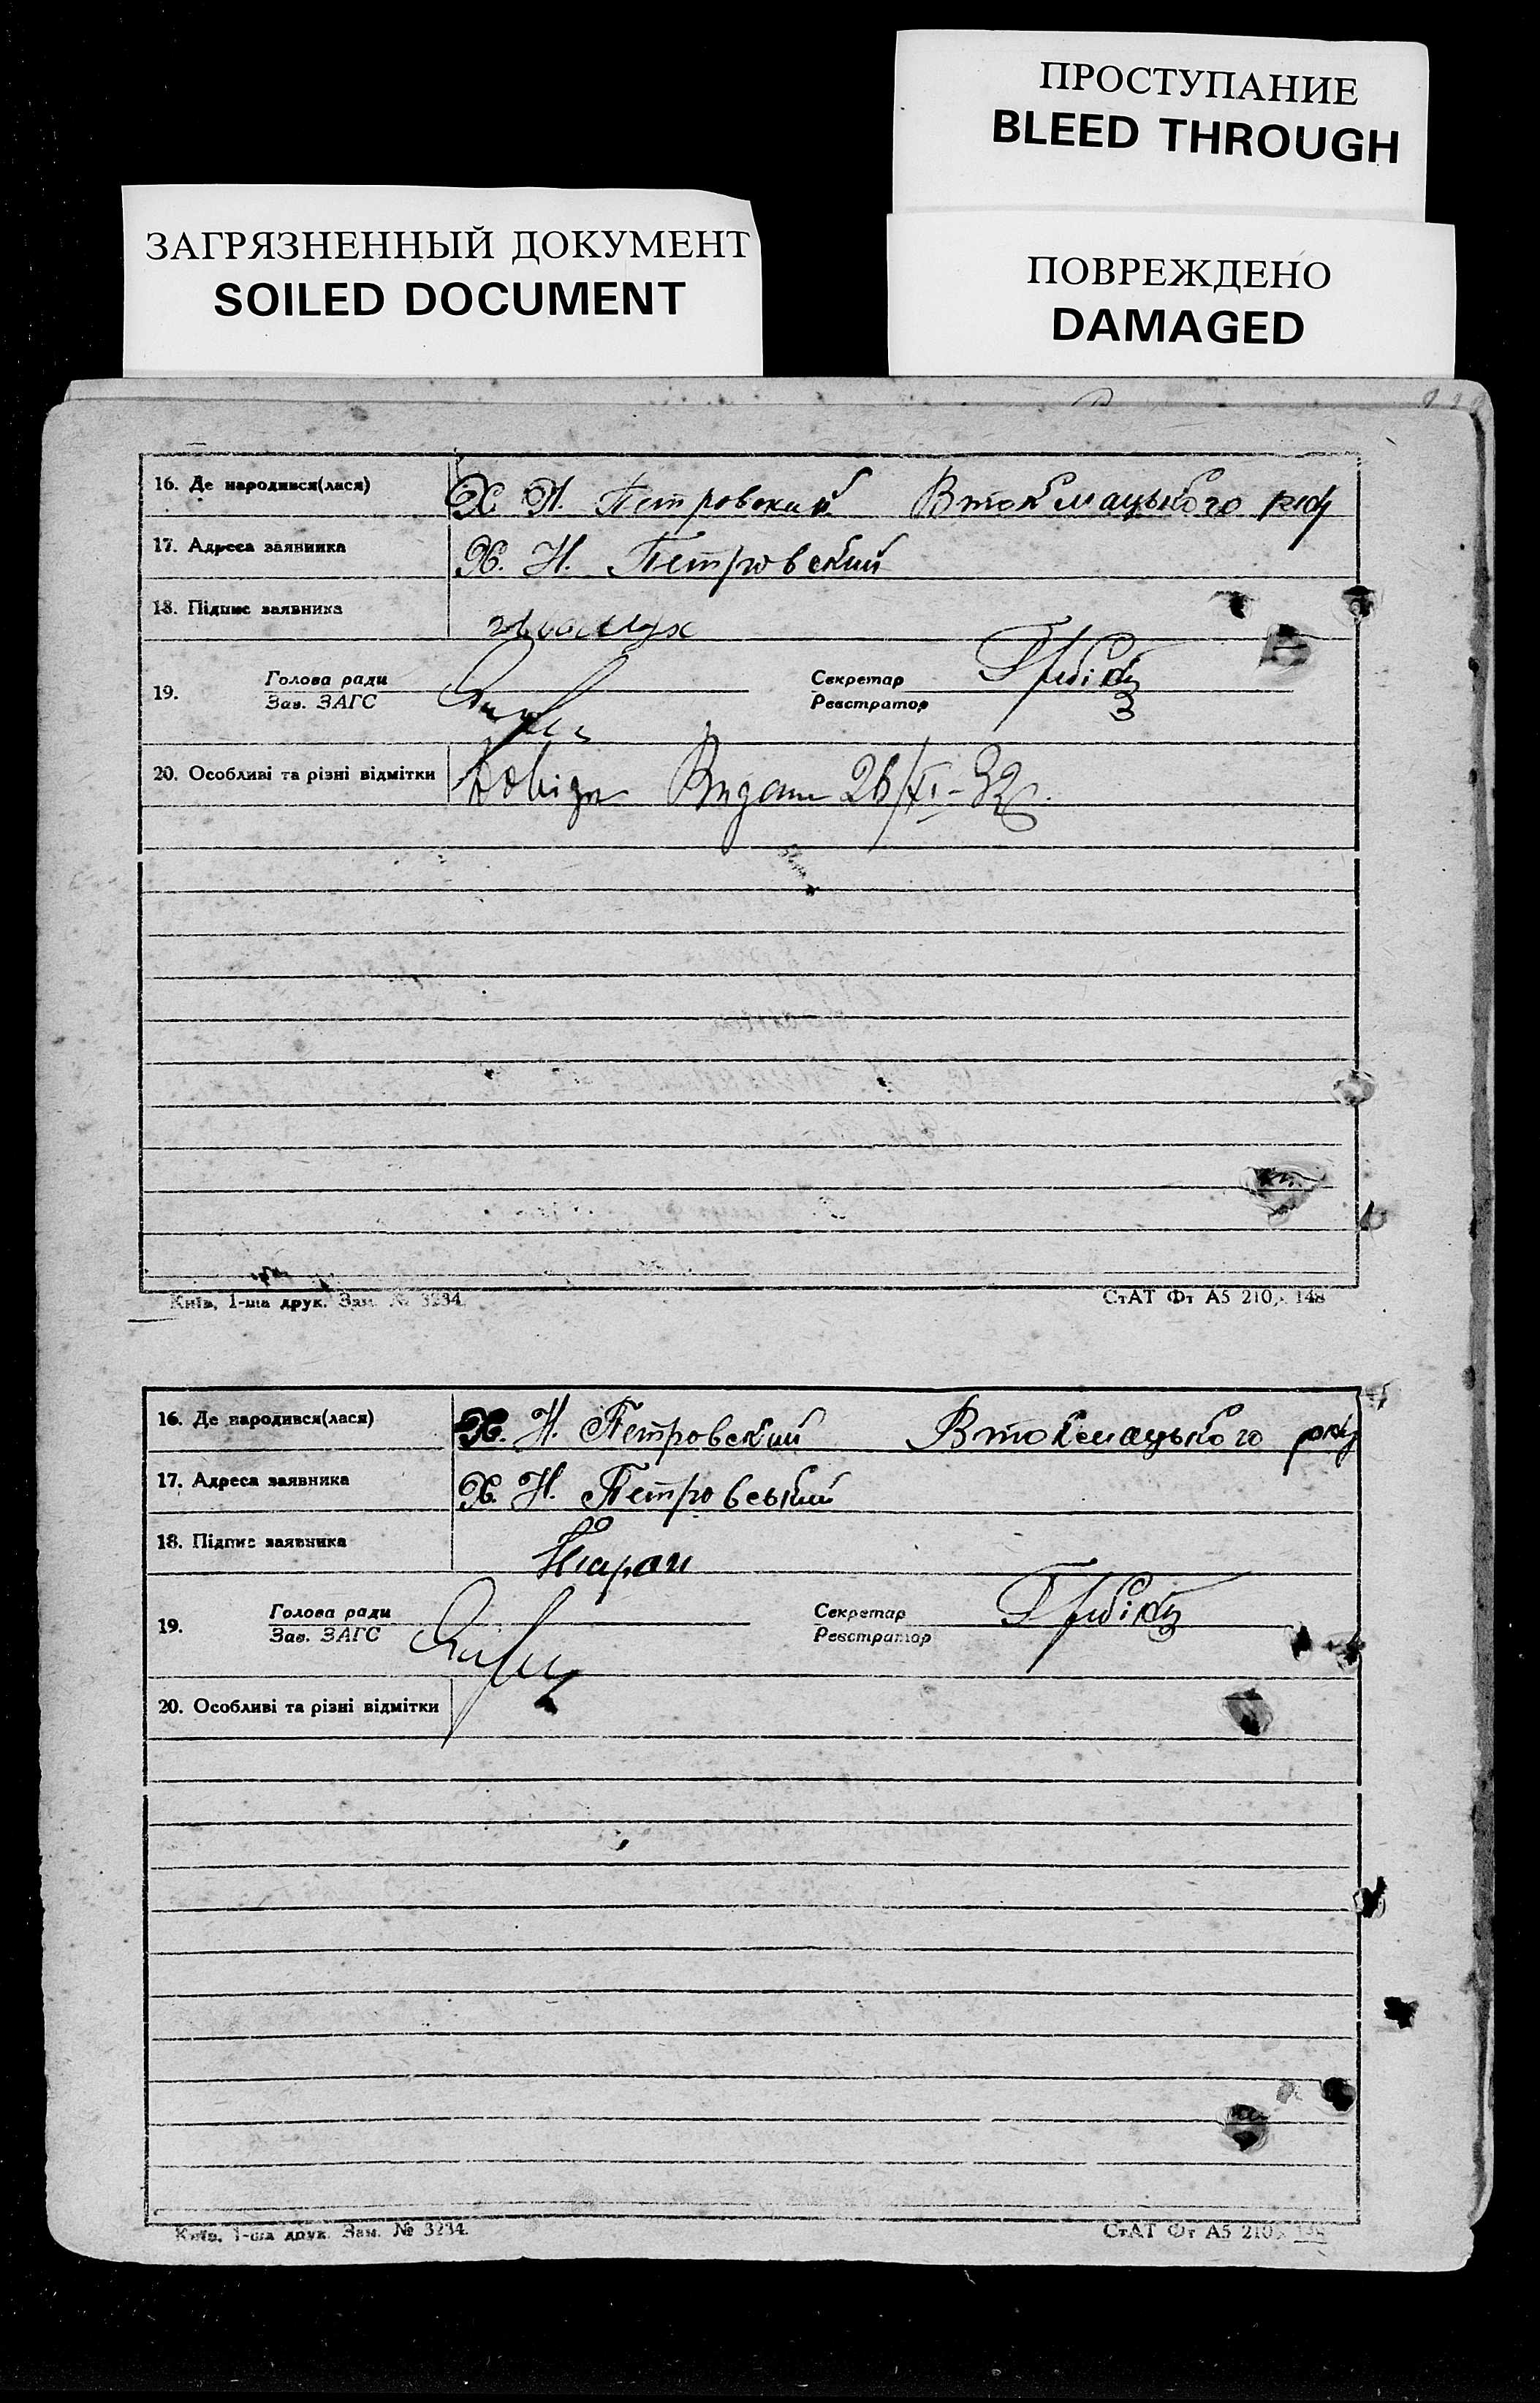 ПРОСТУПАНИЕ
BLEED THROUGH
ЗАГРЯЗНЕННЫЙ ДОКУМЕНТ
SOILED DOCUMENT
ПОВРЕЖДЕНО
DAMAGED
16. Де народився(лася) Х. Н. Петровский Втокмацького
17. Адреса заявника Х. Н. Петровский
18. Підпис заявника
19. Голова ради Секретар
Зав. ЗАГС Реєстратор
20. Особливі та різні відмітки Видан 26/XI-32
Київ, 1-ша друк. Зам. № 3234. СтАТ Фт А5 210 × 148
16. Де народився(лася) Х. Н. Петровский Втокмацького
17. Адреса заявника Х. Н. Петровський
18. Підпис заявника
19. Голова ради Секретар
Зав. ЗАГС Реєстратор
20. Особливі та різні відмітки
Київ, 1-ша друк. Зам. № 3234. СтАТ Фт А5 210 × 148